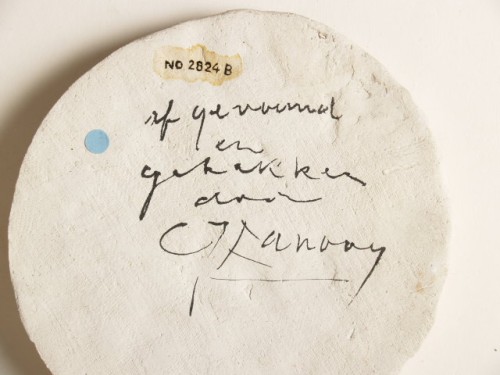 NO 2824 B
af gevormd
en
gebakken
door
CJLanooy